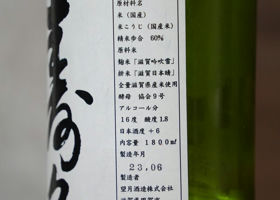 原材料名
米（国産）
米こうじ（国産米）
精米歩合　60%
原料米
麹米「滋賀吟吹雪」
掛米「滋賀日本晴」
全量滋賀県産米使用
酵母　協会９号
アルコール分
１６度　酸度1.8
日本酒度　＋６
内容量　１８００㎖
製造年月
23.06
製造者
望月酒造株式会社